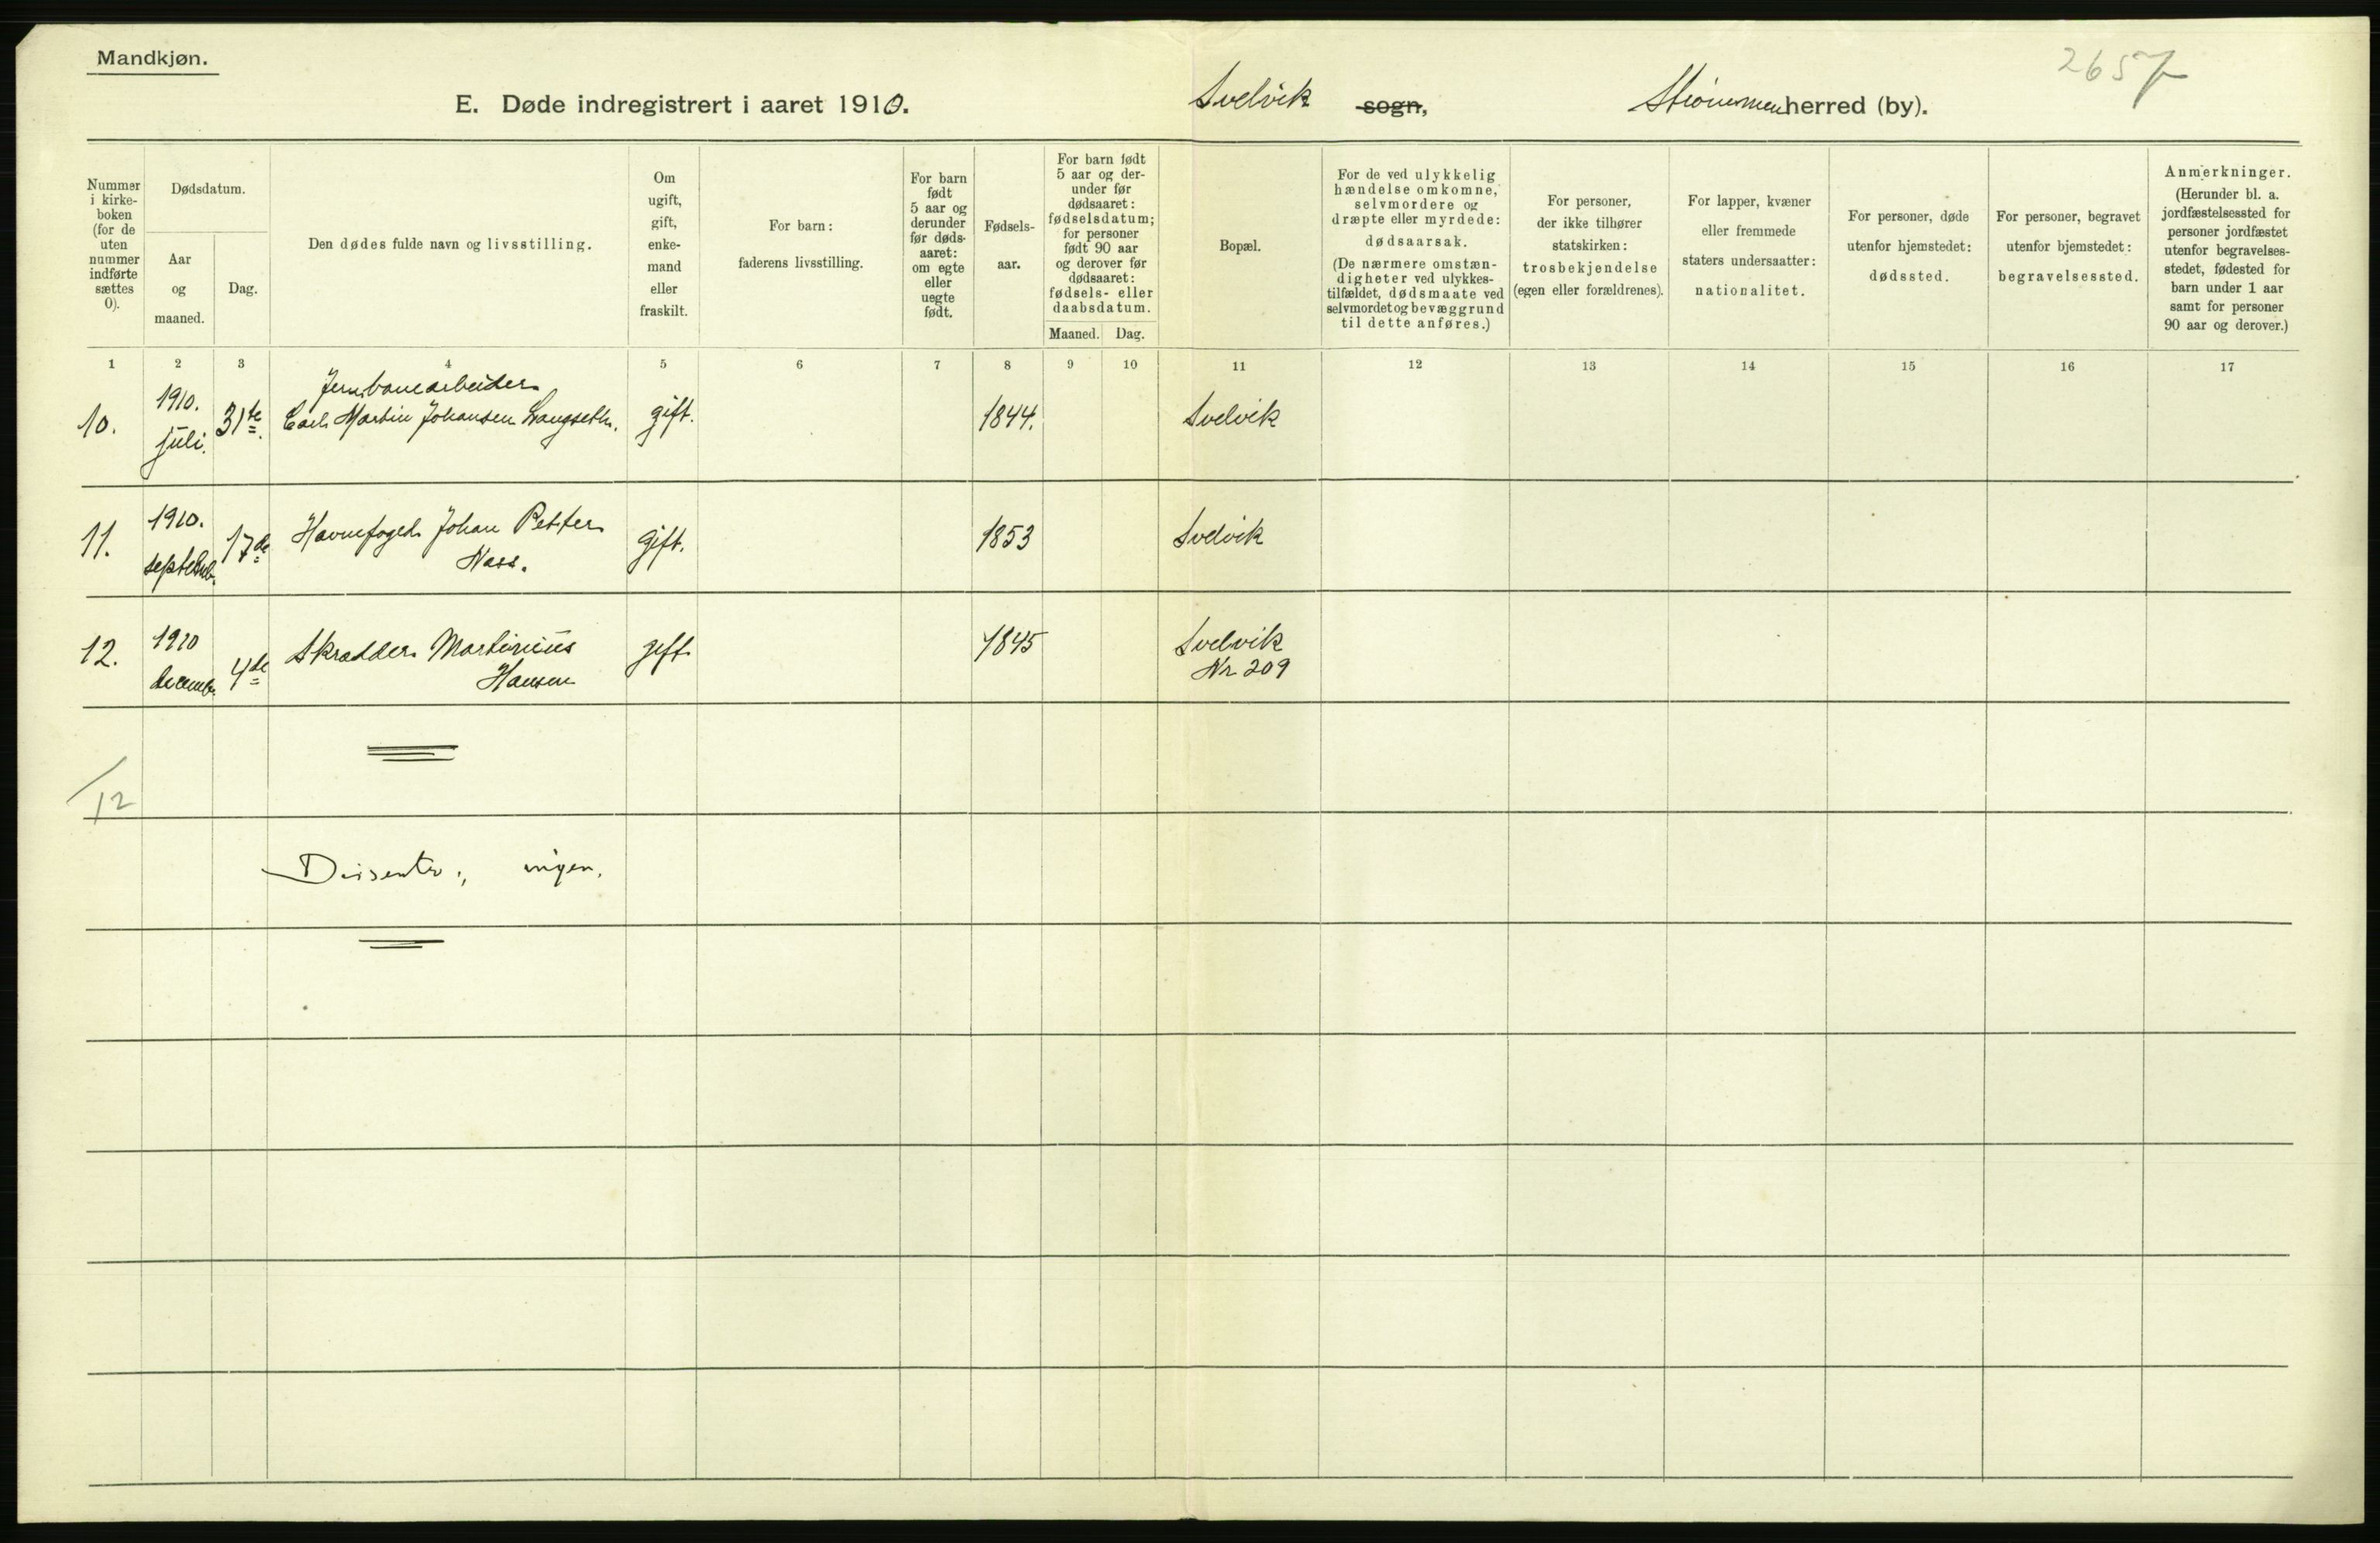 Mandkjøn.
2657
E. Døde indregistrert i aaret 1910. Svelvik sogn, Strømmen herred (by).
Nummer i kirke-boken (for de uten nummer indførte sættes 0).
Dødsdatum.
Aar og maaned.
Dag.
Den dødes fulde navn og livsstilling.
Om ugift, gift, enke-mand eller fraskilt.
For barn: faderens livsstilling.
For barn født 5 aar og derunder før døds-aaret: om egte eller uegte født.
Fødsels-aar.
For barn født 5 aar og der-under før dødsaaret: fødselsdatum; for personer født 90 aar og derover før dødsaaret: fødsels- eller daabsdatum.
Maaned. Dag.
Bopæl.
For de ved ulykkelig hændelse omkomne, selvmordere og dræpte eller myrdede: dødsaarsak. (De nærmere omstæn-digheter ved ulykkes-tilfældet, dødsmaate ved selvmordet og bevæggrund til dette anføres.)
For personer, der ikke tilhører statskirken: trosbekjendelse (egen eller forældrenes).
For lapper, kvæner eller fremmede staters undersaatter: nationalitet.
For personer, døde utenfor hjemstedet: dødssted.
For personer, begravet utenfor bjemstedet: begravelsessted.
Anmerkninger. (Herunder bl. a. jordfæstelsessted for personer jordfæstet utenfor begravelses-stedet, fødested for barn under 1 aar samt for personer 90 aar og derover.)
1 2 3 4 5 6 7 8 9 10 11 12 13 14 15 16 17
10. 1910. juli. 31te Jernbanearbeider Carl Martin Johansen Langseth. gift. 1844. Svelvik
11. 1910. septemb. 17de Havnefoged Johan Petter Nass. gift. 1853 Svelvik
12. 1910 decemb. 4de Skrædder Martinius Hansen gift 1845 Svelvik Nr 209
12
Dissentr.; ingen.